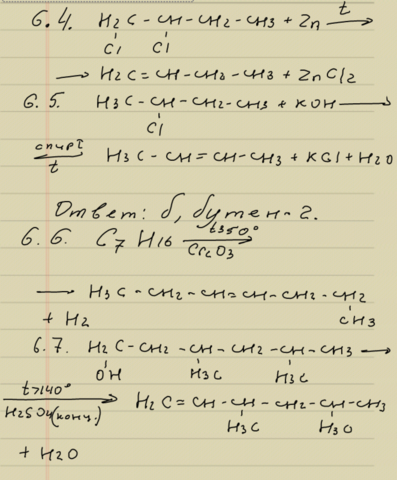 6.4. H2C-CH-CH2-CH3 + Zn t→
Cl Cl
→ H2C=CH-CH2-CH3 + ZnCl2
6.5. H3C-CH-CH2-CH3 + KOH →
Cl
спирт
t
H3C-CH=CH-CH3 + KCl + H2O
Ответ: б, бутен-2.
6.6. C7H16 t350° →
Cr2O3
→ H3C-CH2-CH=CH-CH2-CH2
+ H2 CH3
6.7. H2C-CH2-CH-CH2-CH-CH3 →
OH H3C H3C
t>140° →
H2SO4(конц.)
H2C=CH-CH-CH2-CH-CH3
H3C H3C
+ H2O